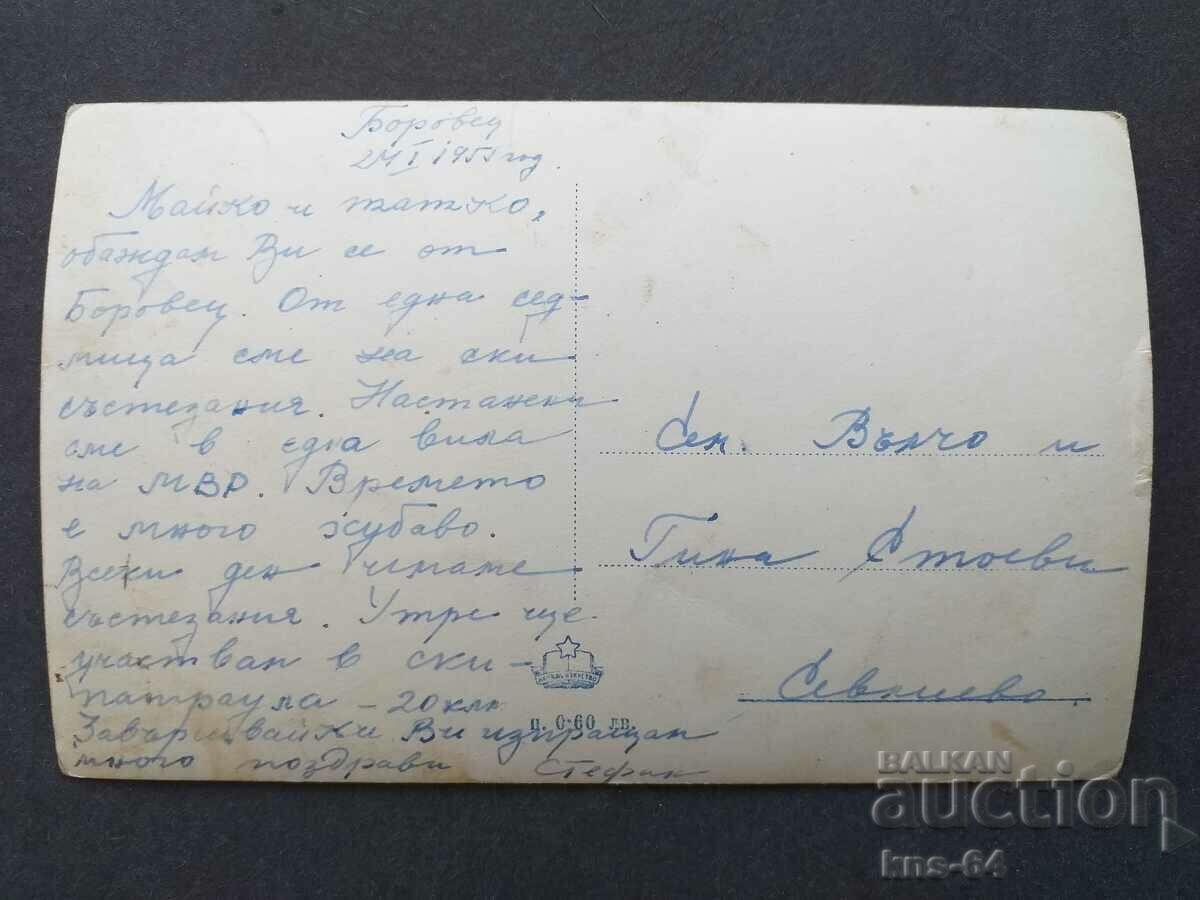 Боровец
24 I 1955 год.
Майко и татко,
обаждам Ви се от
Боровец. От една сед-
мица сме на ски
състезания. Настанени
сме в една вила
на МВР. Времето
е много хубаво.
Всеки ден имаме
състезания. Утре ще
участвам в ски-
патраула - 20 клм
Завършвайки Ви изпращам
много поздрави Стефан
Сем. Вълчо и
Гина Стоеви
Севлиево
ц. 0·60 лв.
BALKAN
auction
kns-64